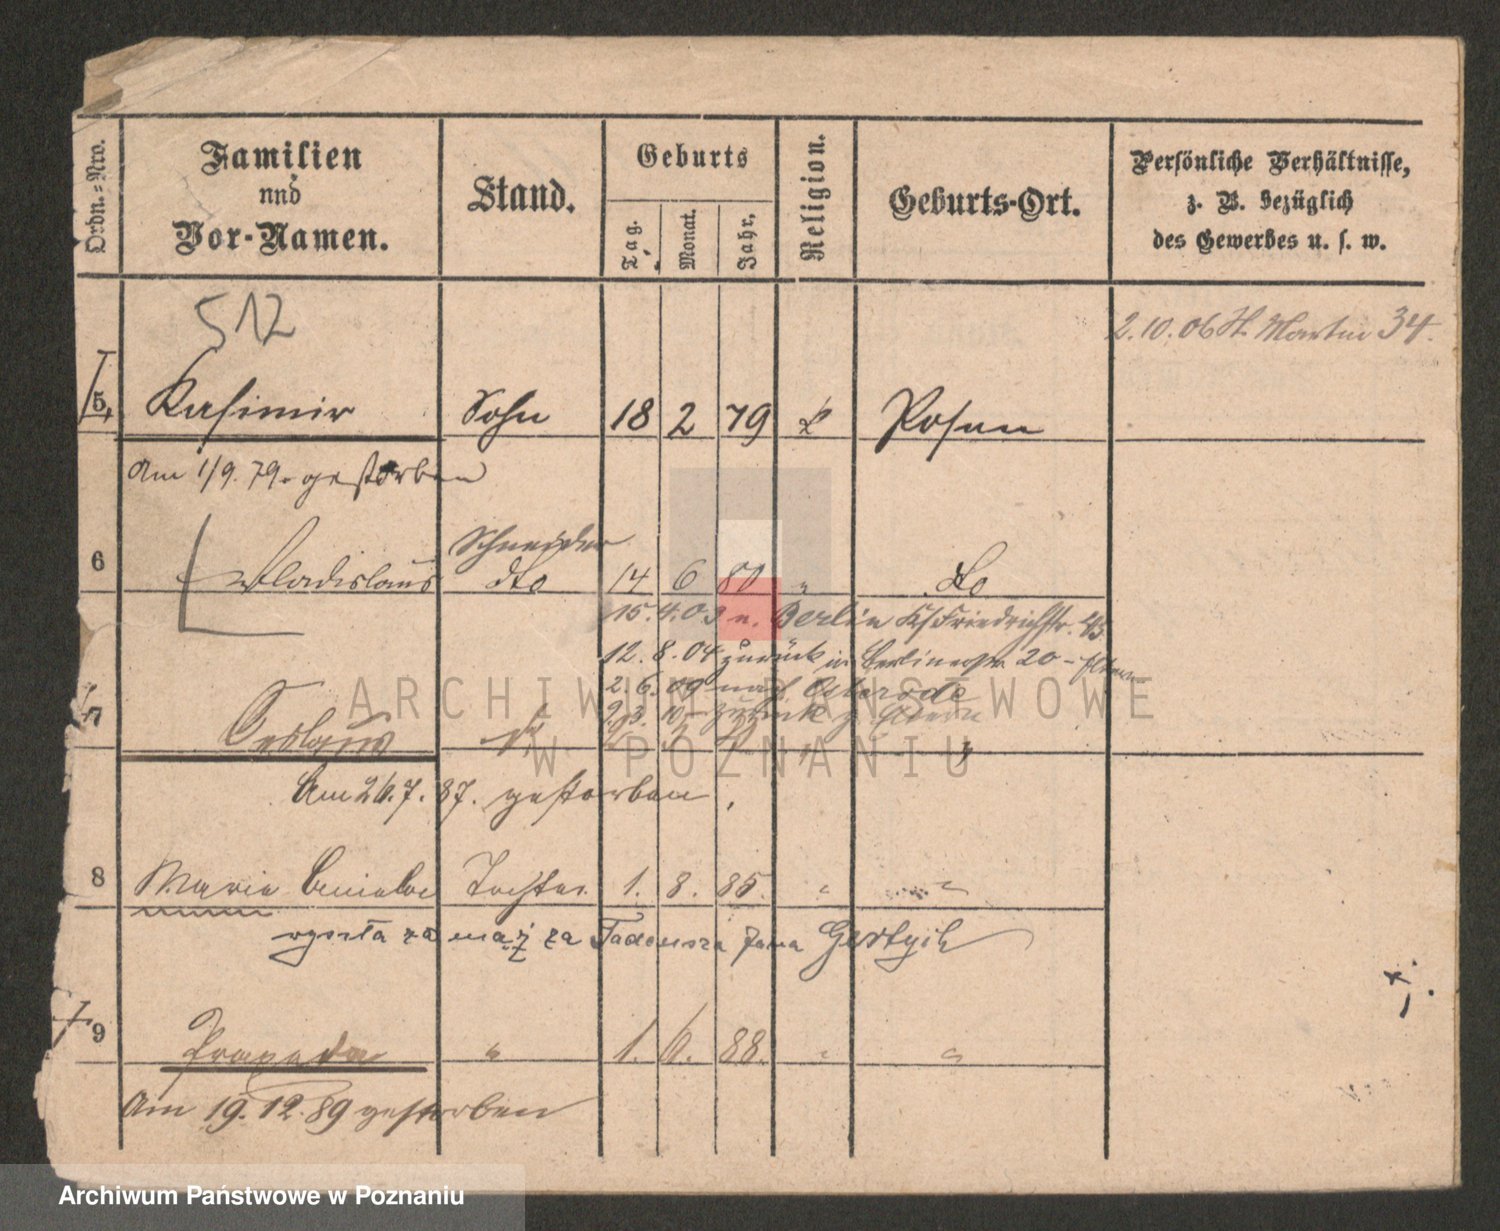 Ordn.-Nro.
Familien
und
Vor-Namen.
Stand.
Geburts
Tag.
Monat.
Jahr.
Religion.
Geburts-Ort.
Persönliche Verhältnisse,
z. B. bezüglich
des Gewerbes u. s. w.
512
2.10.06 St. Martin 34.
5 Kasimir Sohn 18 2 79 Posen
Am 1/9. 79. gestorben
Schneider
6 Wladislaus dto 14 6 80 " do
15.4.03 n. Berlin Friedrichstr.
12.8.04 zurück in Berlinerstr. 20 - Eltern
2.6.09 nach Osterode
9.3.10 - zurück z. Eltern
7 Ceslaus
Am 26.7.87. gestorben.
8 Maria Tochter 1. 8. 85. " "
wyszła za mąż za Tadeusza Jana
9 Praxeda " 1. 6. 88. " "
Am 19.12.89 gestorben
ARCHIWUM PAŃSTWOWE
W POZNANIU
Archiwum Państwowe w Poznaniu